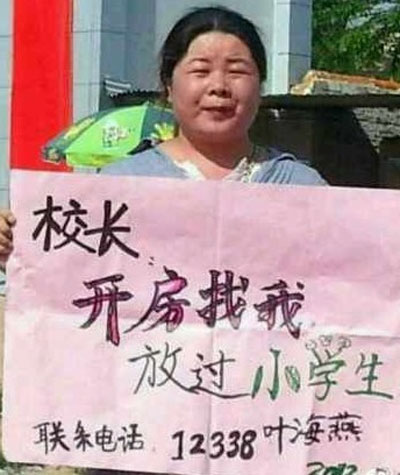 校长
开房找我
放过小学生
联系电话 12338 叶海燕